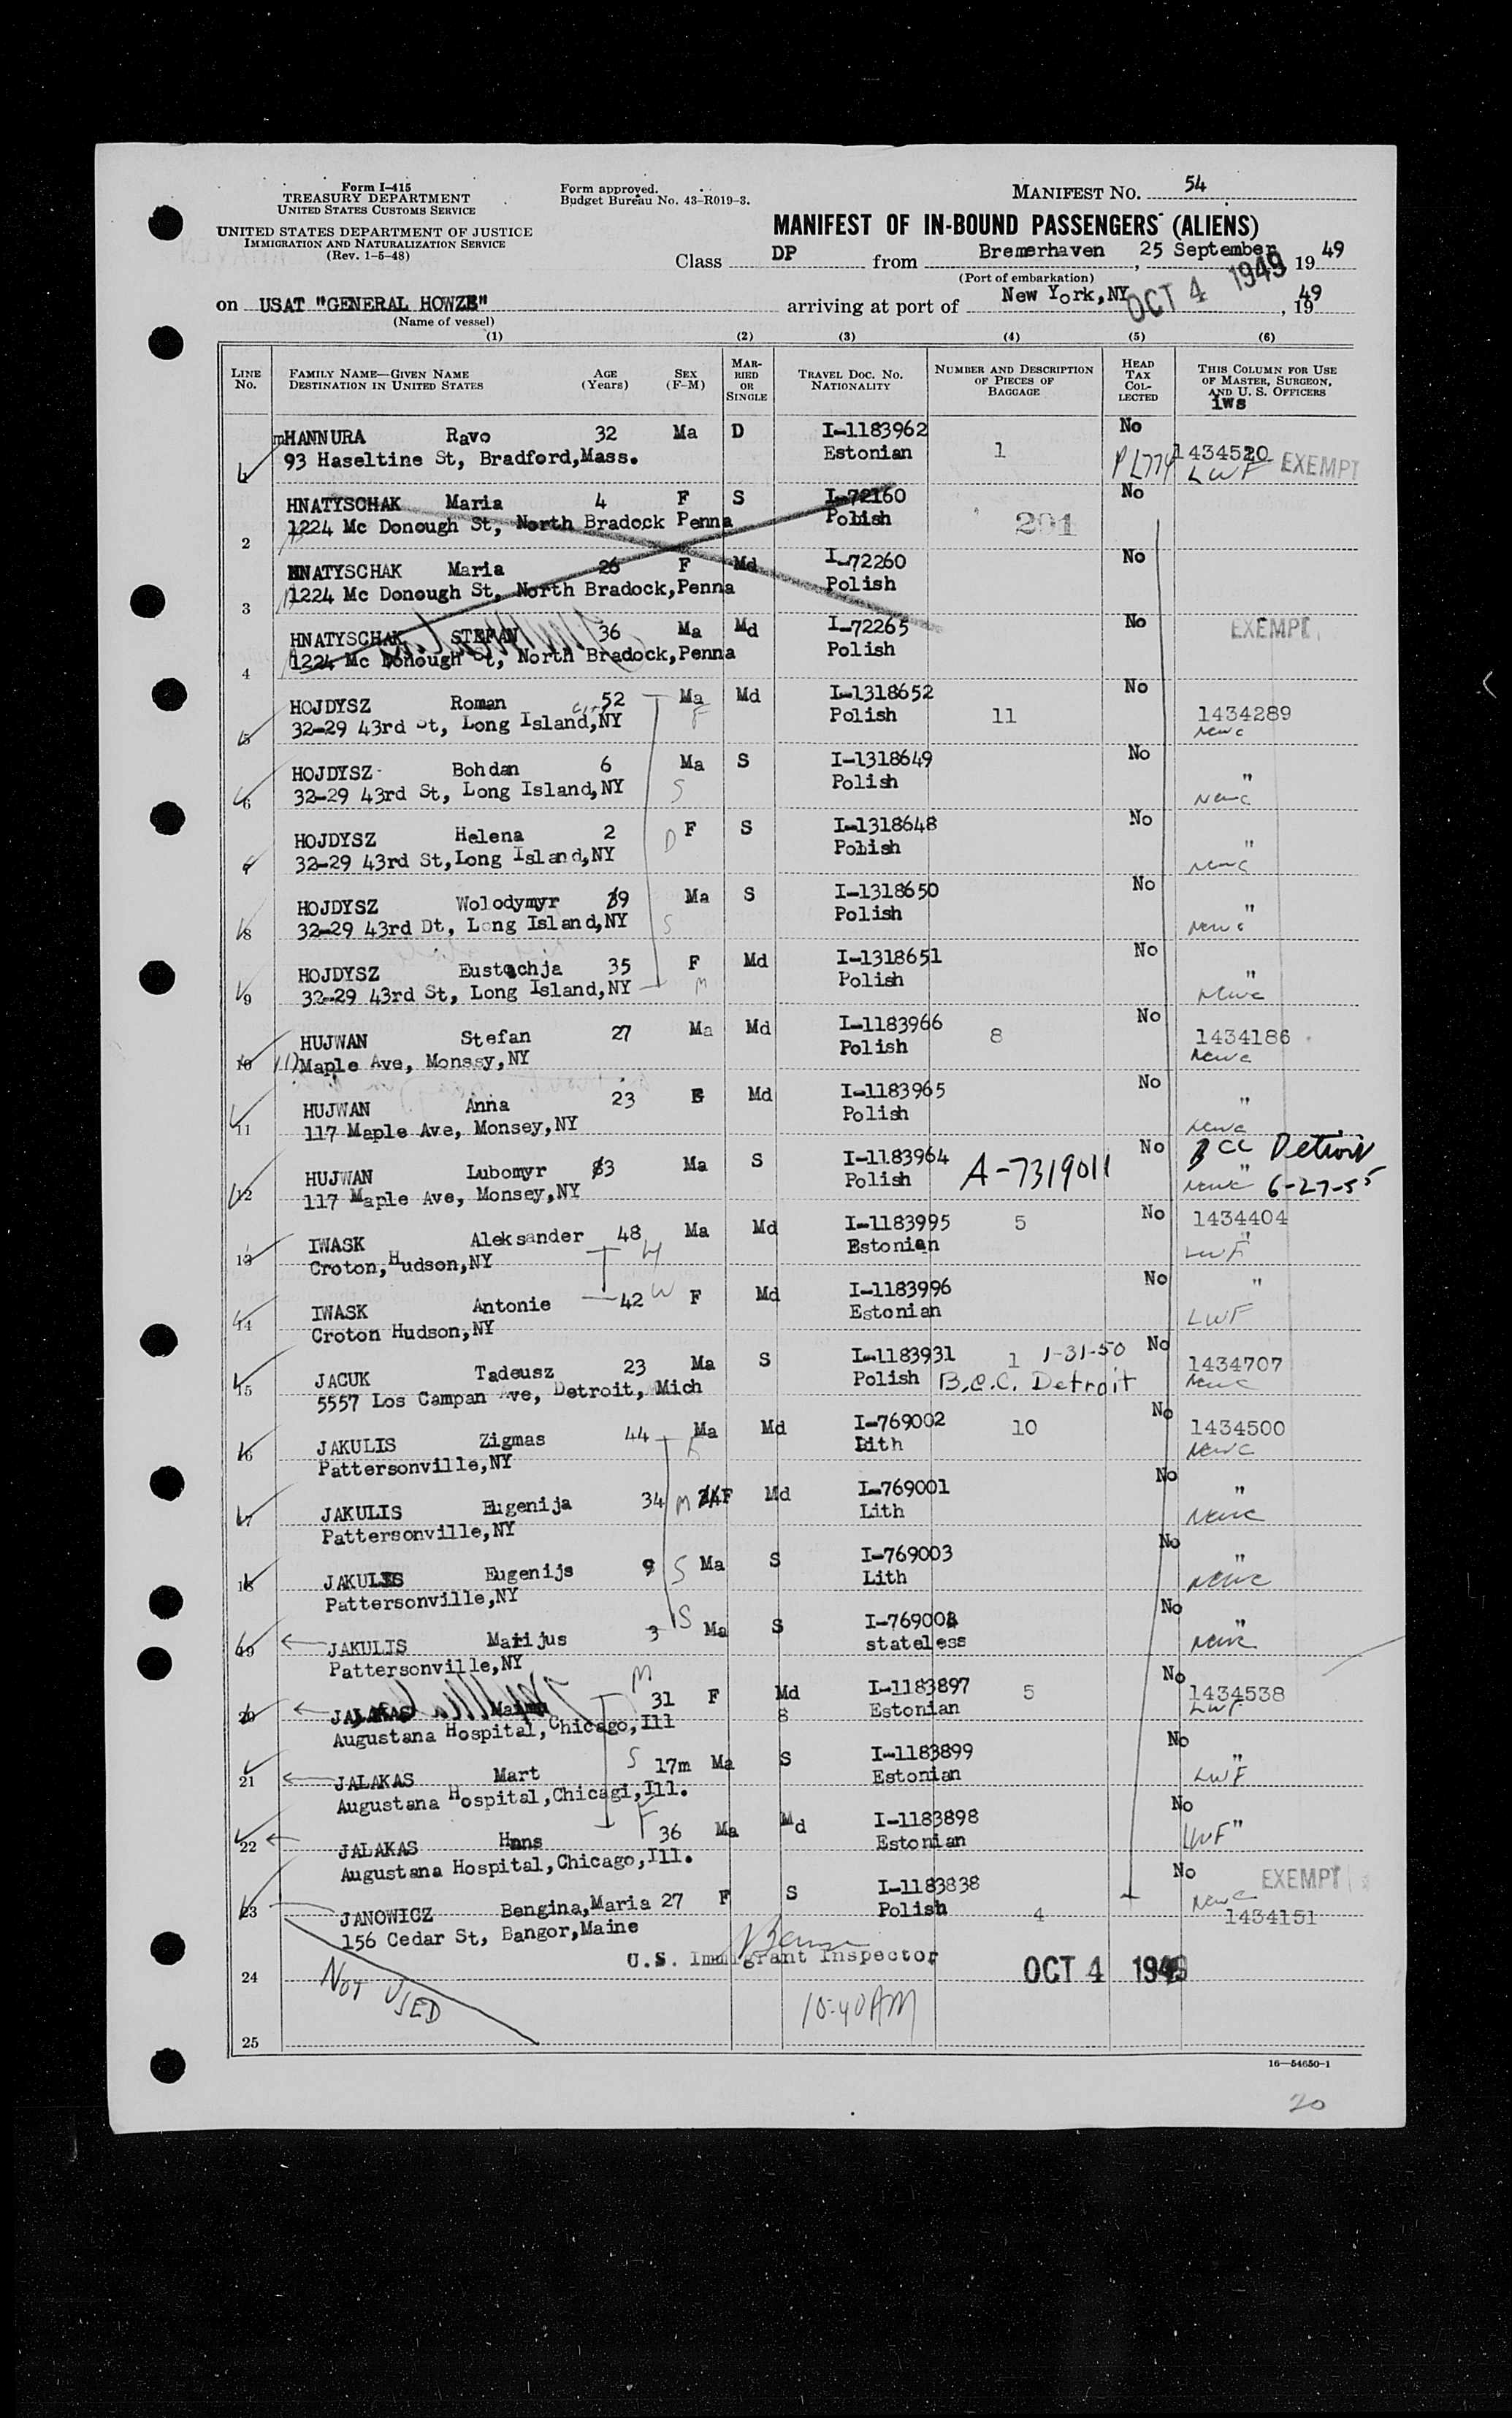 Form I-415
TREASURY DEPARTMENT
UNITED STATES CUSTOMS SERVICE
UNITED STATES DEPARTMENT OF JUSTICE
IMMIGRATION AND NATURALIZATION SERVICE
(Rev. 1-5-48)
Form approved.
Budget Bureau No. 43-R019-3.
MANIFEST NO. 54
MANIFEST OF IN-BOUND PASSENGERS (ALIENS)
Class DP from Bremerhaven, 25 September, 1949
(Port of embarkation)
on USAT "GENERAL HOWZE" arriving at port of New York, NY OCT 4 1949, 1949
(Name of vessel)
(1) (2) (3) (4) (5) (6)
LINE No. FAMILY NAME—GIVEN NAME DESTINATION IN UNITED STATES AGE (Years) SEX (F-M) MARRIED OR SINGLE TRAVEL DOC. NO. NATIONALITY NUMBER AND DESCRIPTION OF PIECES OF BAGGAGE HEAD TAX COLLECTED THIS COLUMN FOR USE OF MASTER, SURGEON, AND U. S. OFFICERS
iws
1 HANNURA Ravo 32 Ma D I-1183962 No
93 Haseltine St, Bradford,Mass. Estonian 1 PL774 1434520 LWF EXEMPT
2 HNATYSCHAK Maria 4 F S I-72160 No
1224 Mc Donough St, North Bradock Penna Polish 291
3 HNATYSCHAK Maria 26 F Md I-72260 No
1224 Mc Donough St, North Bradock,Penna Polish
4 HNATYSCHAK STEFAN 36 Ma Md I-72265 No EXEMPT
1224 Mc Donough St, North Bradock,Penna Polish
5 HOJDYSZ Roman 52 Ma F Md I-1318652 No
32-29 43rd St, Long Island,NY Polish 11 1434289 NCWC
6 HOJDYSZ Bohdan 6 Ma S I-1318649 No
32-29 43rd St, Long Island,NY S Polish " NCWC
7 HOJDYSZ Helena 2 D F S I-1318648 No
32-29 43rd St,Long Island,NY Polish " NCWC
8 HOJDYSZ Wolodymyr 9 Ma S I-1318650 No
32-29 43rd Dt, Long Island,NY S Polish " NCWC
9 HOJDYSZ Eustachja 35 F Md I-1318651 No
32-29 43rd St, Long Island,NY M Polish " NCWC
10 HUJWAN Stefan 27 Ma Md I-1183966 No
117 Maple Ave, Monssy,NY Polish 8 1434186 NCWC
11 HUJWAN Anna 23 F Md I-1183965 No
117 Maple Ave, Monsey,NY Polish " NCWC
12 HUJWAN Lubomyr 3 Ma S I-1183964 No BCC Detroit
117 Maple Ave, Monsey,NY Polish A-7319011 " NCWC 6-27-55
13 IWASK Aleksander 48 Ma Md I-1183995 5 No 1434404
Croton,Hudson,NY H Estonian " LWF
14 IWASK Antonie 42 W F Md I-1183996 No "
Croton Hudson,NY Estonian LWF
15 JACUK Tadeusz 23 Ma S I-1183931 1 1-31-50 No 1434707
5557 Los Campan Ave, Detroit, Mich Polish B.C.C. Detroit NCWC
16 JAKULIS Zigmas 44 Ma Md I-769002 10 No 1434500
Pattersonville,NY Lith NCWC
17 JAKULIS Eugenija 34 M F Md I-769001 No "
Pattersonville,NY Lith NCWC
18 JAKULIS Eugenijs 9 S Ma S I-769003 No "
Pattersonville,NY Lith NCWC
19 JAKULIS Marijus 3 S Ma S I-769004 No "
Pattersonville,NY stateless NCWC
20 JALAKAS 31 M F Md I-1183897 5 No 1434538
Augustana Hospital,Chicago,Ill 8 Estonian LWF
21 JALAKAS Mart S 17m Ma S I-1183899 No "
Augustana Hospital,Chicagi,Ill. Estonian LWF
22 JALAKAS Hans F 36 Ma Md I-1183898 No
Augustana Hospital,Chicago,Ill. Estonian LWF "
23 JANOWICZ Bengina,Maria 27 F S I-1183838 No EXEMPT
156 Cedar St, Bangor,Maine Polish 4 NCWC 1434151
U.S. Immigrant Inspector
24 NOT USED OCT 4 1949
10:40AM
25
16—54650-1
20